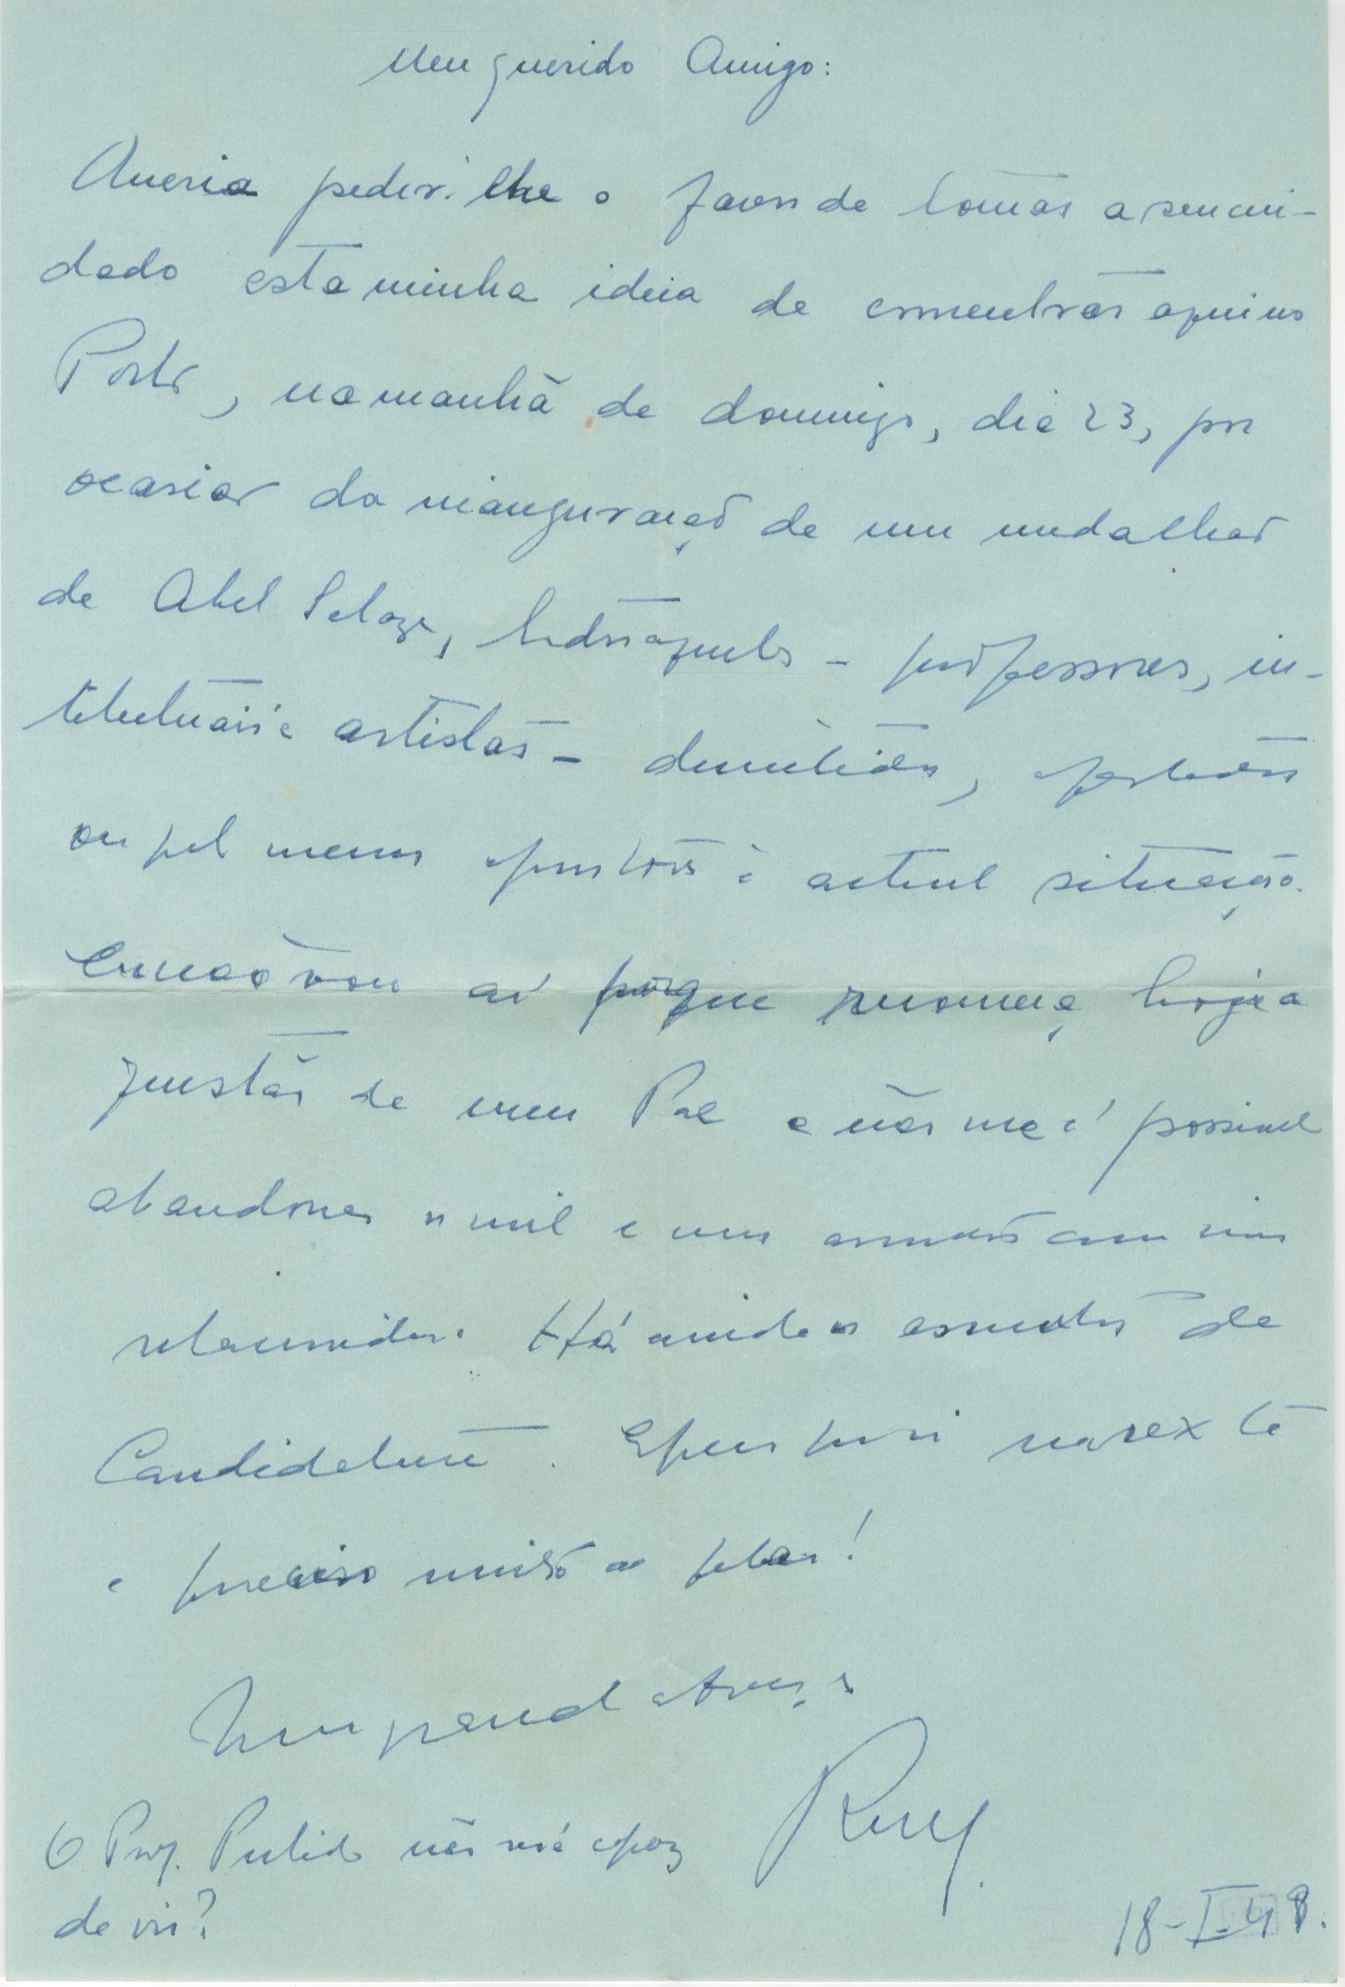 Meu querido Amigo:
Queria pedir-lhe o favor de tomar a seu cui-
dado esta minha ideia de concentrar aqui no
Porto, na manhã de domingo, dia 23, por
ocasião da inauguração de um medalhão
de Abel Salazar, todos aqueles - professores, in-
telectuais e artistas - demitidos, afastados
ou pelo menos opostos à actual situação.
Eu não vou aí porque recomeça hoje a
questão de meu Pai e não me é possível
abandonar
Há ainda os assuntos de
Candidatura.
é preciso muito
Um grande abraço
Ruy
O Prof. Pulido não será capaz
de vir?
18-I-48.